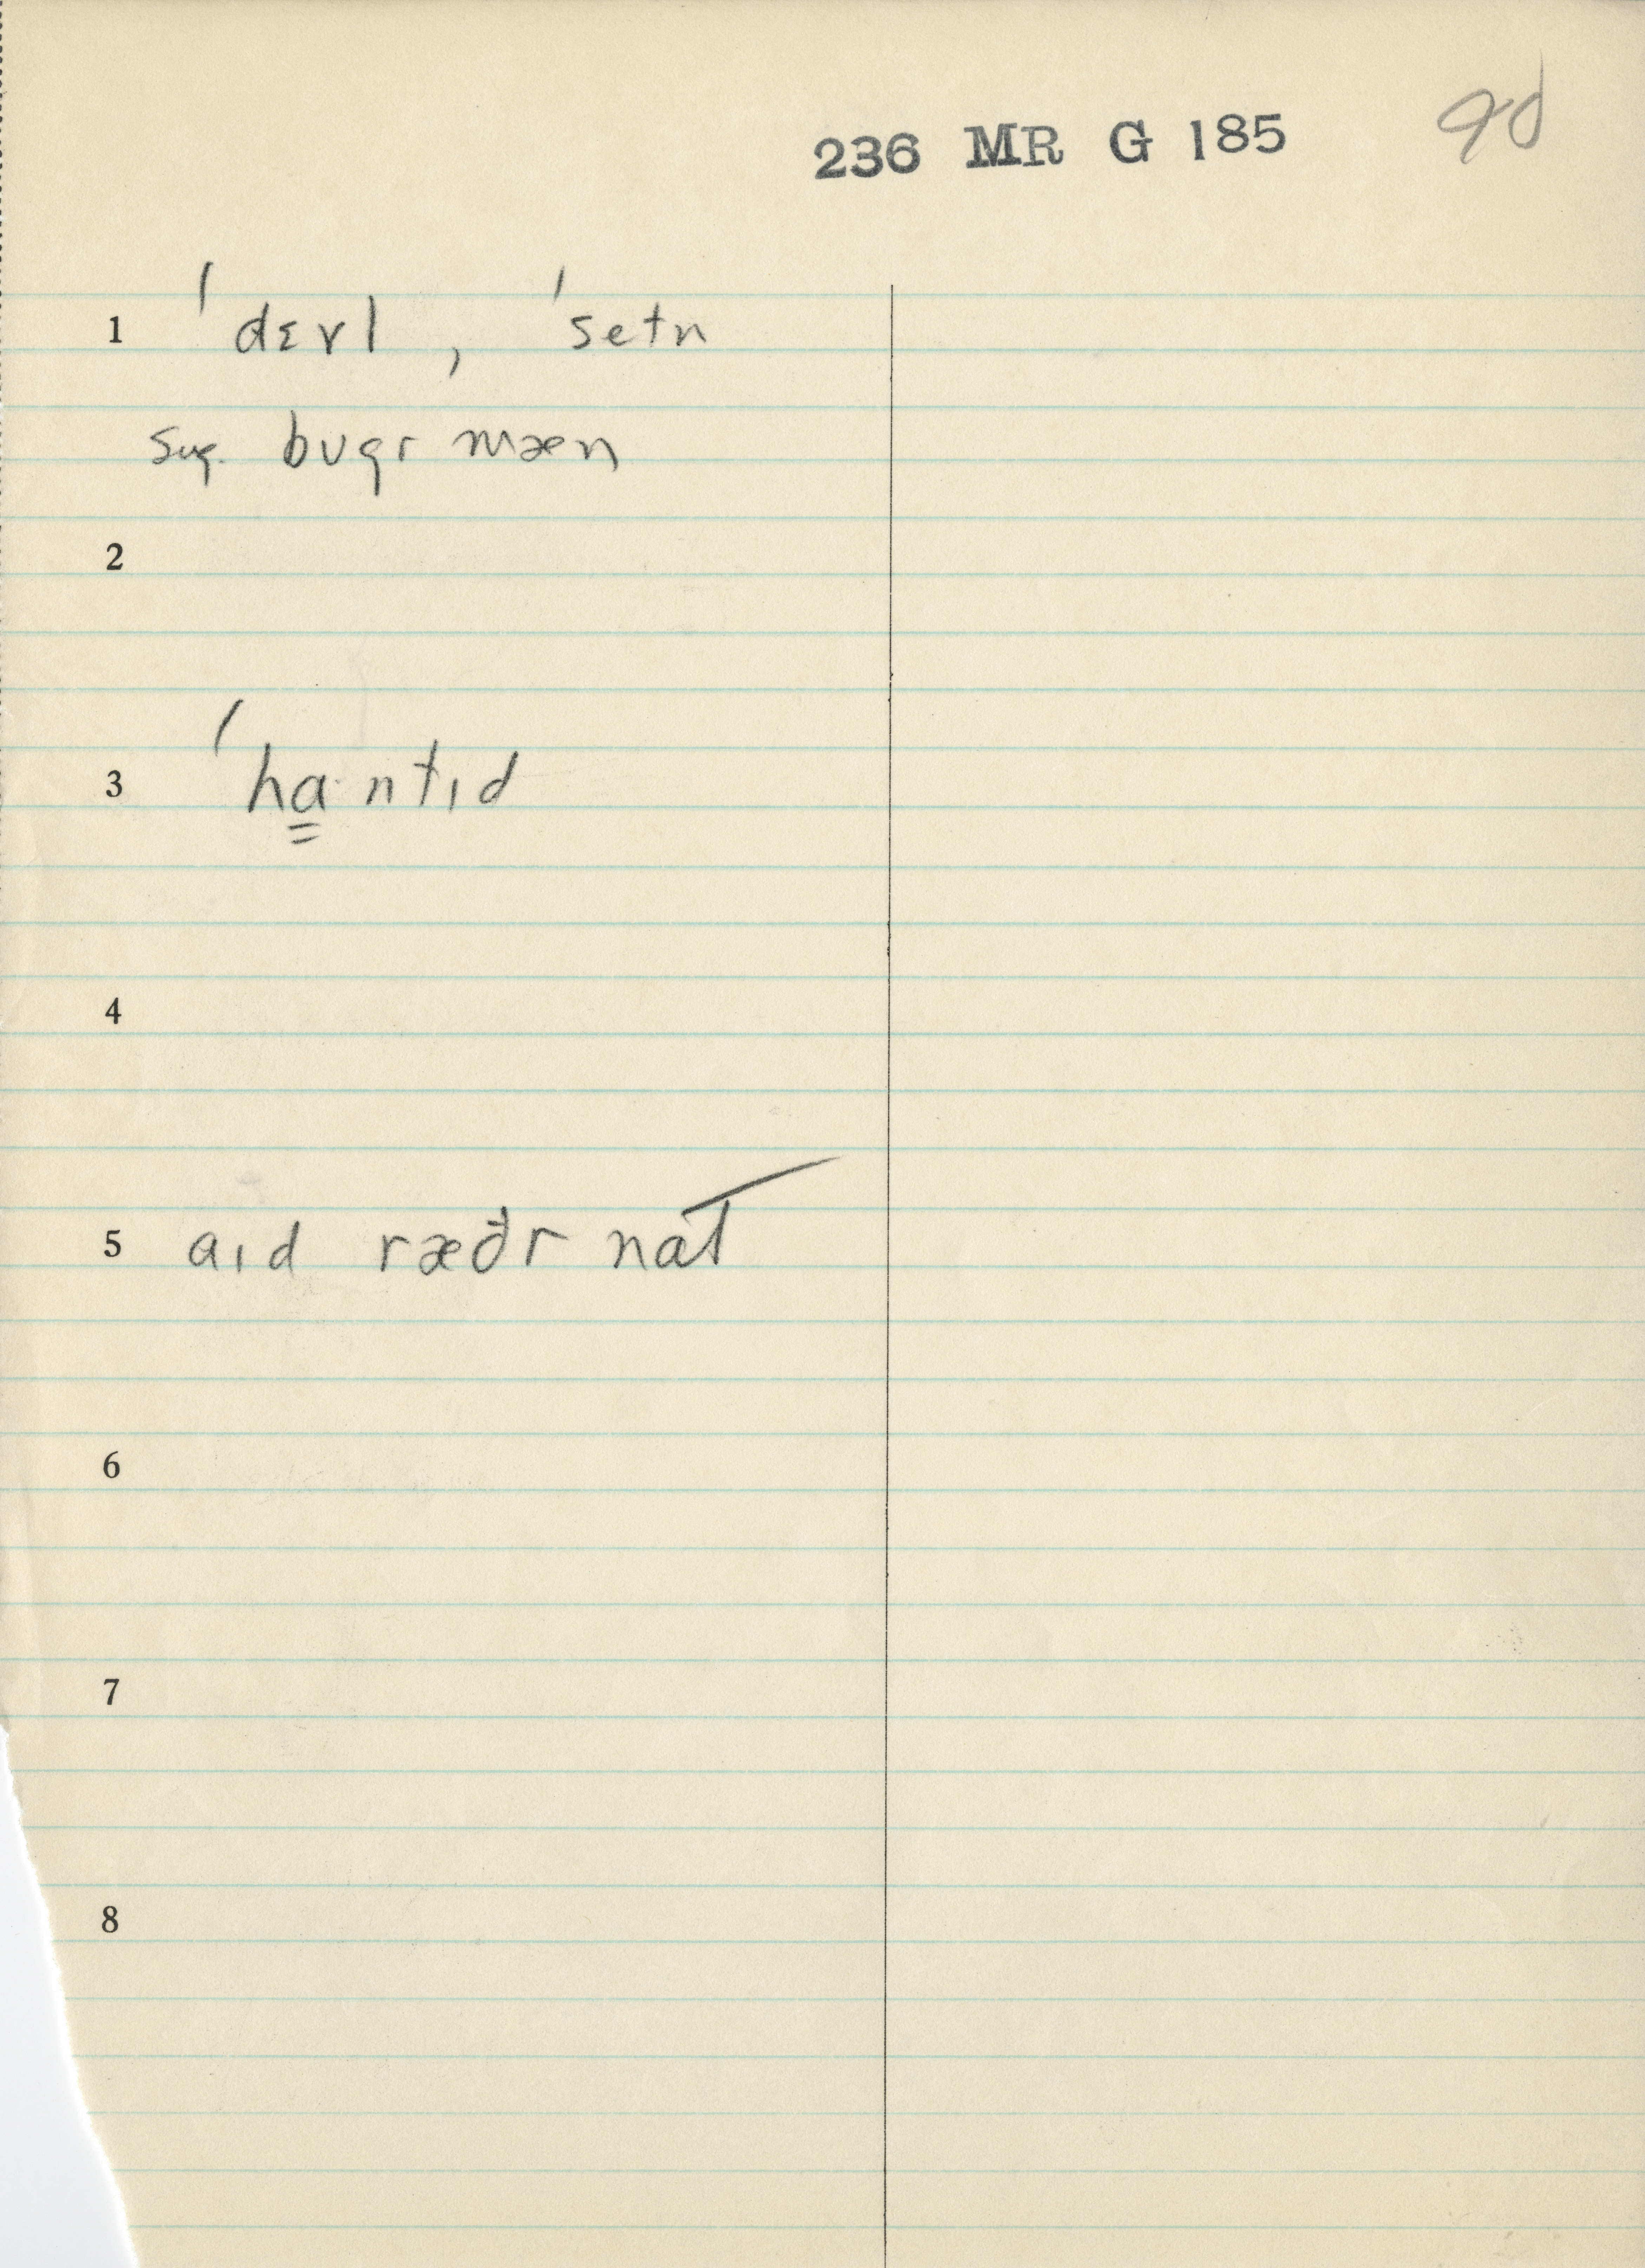 236 MR G 185 90
1 ˈdɛvl , ˈsetn
sug. bugr mæn
2
3 ˈha̳· ntɪd
4
5 aɪd ræðr nat
6
7
8